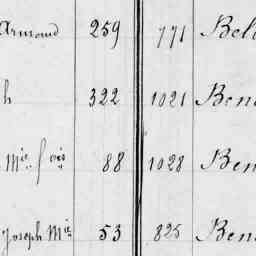 Armand 259 771 Bel
h 322 1021 Ben
Mie fois 88 1028 Ben
Joseph Mie 53 825 Ben